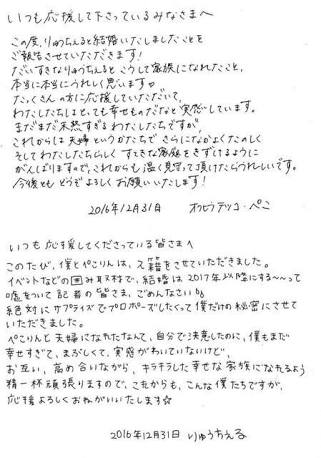 いつも応援して下さっているみなさまへ
この度、りゅうちぇると結婚いたしましたことを
ご報告させていただきます!
だいすきなりゅうちぇると こうして家族になれたこと、
本当に本当にうれしく思います♡
たくさんの方に応援していただいて、
わたしたちは とっても幸せものだなと実感しています。
まだまだ未熟すぎるわたしたちですが、
これからは夫婦というかたちで さらになかよくたのしく
そして わたしたちらしく すてきな家庭をきずけるように
がんばりますので、これからも温く見守って頂けたらうれしいです。
今後とも どうぞよろしくお願いいたします!
2016年12月31日 オクヒラテツコ・ぺこ
いつも応援してくださっている皆さまへ
このたび、僕とぺこりんは、入籍をさせていただきました。
イベントなどの囲み取材で、結婚は2017年以降にする〜〜って
嘘をついて記者の皆さま、ごめんなさい
絶対にサプライズでプロポーズしたくって僕だけの秘密にさせて
いただきました。
ぺこりんと夫婦になれたなんて、自分で決意したのに、僕もまだ
幸せすぎて、まぶしくて、実感がわいていないけど、
お互い、高め合いながら、キラキラした幸せな家族になれるよう
精一杯頑張りますので、これからも、こんな僕たちですが、
応援よろしくおねがいいたします☆
2016年12月31日 りゅうちぇる